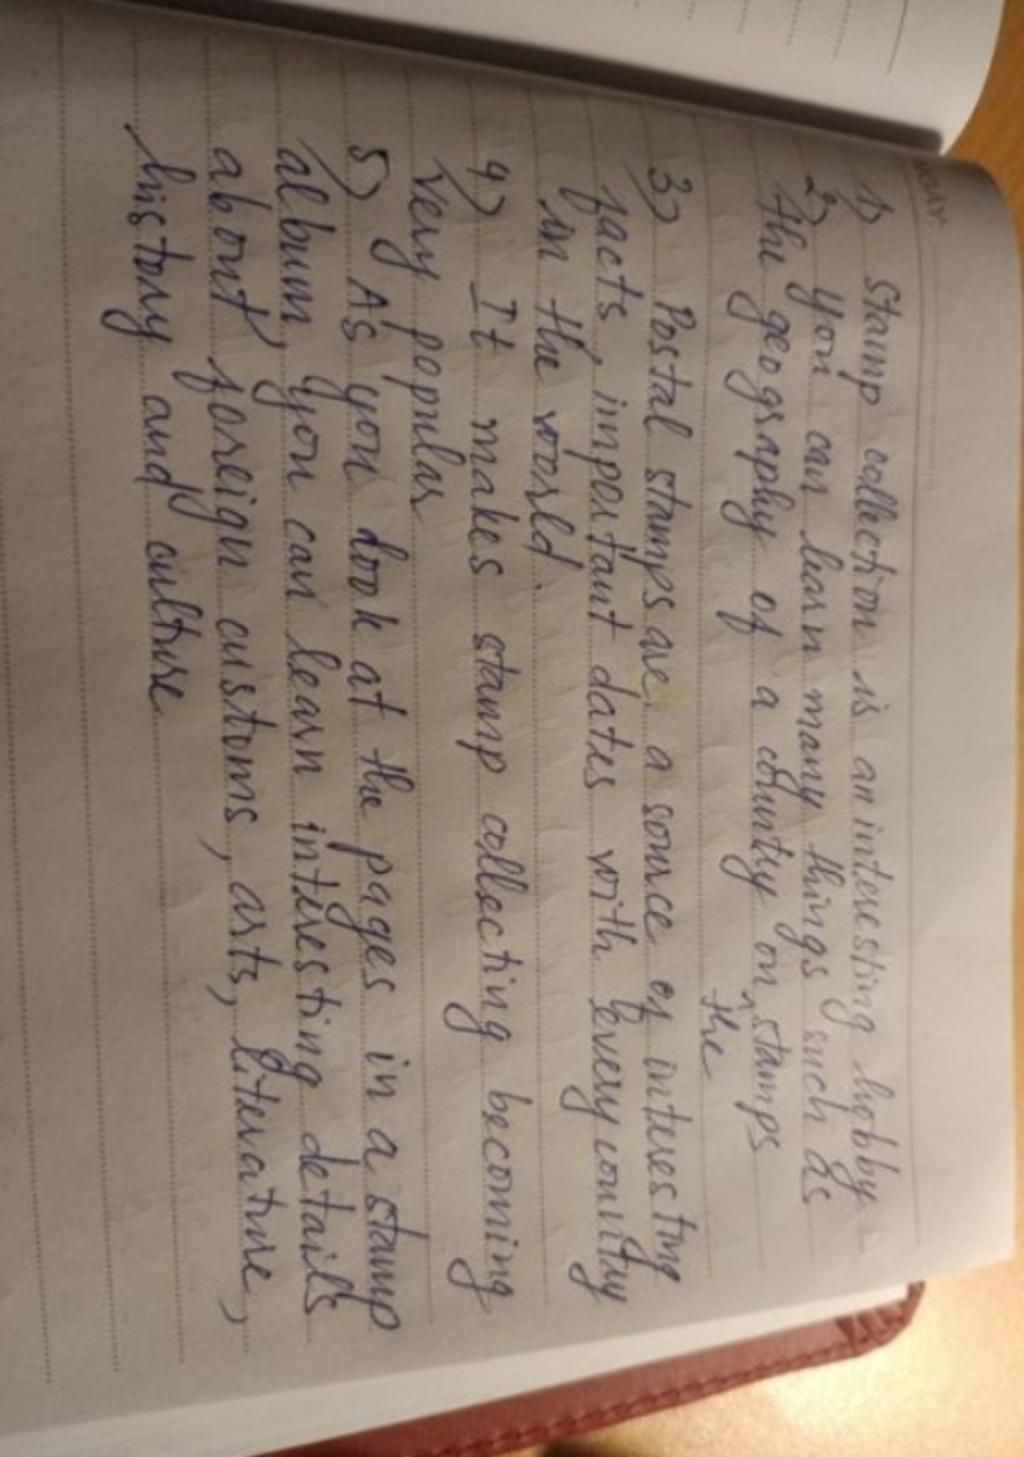 1) Stamp collection is an interesting hobby
2) you can learn many things such as
the geography of a country on the stamps
3) Postal stamps are a source of interesting
facts, important dates with every country
in the world.
4) It makes stamp collecting becoming
very popular
5) As you look at the pages in a stamp
album, you can learn interesting details
about, foreign customs, arts, literature,
history and culture